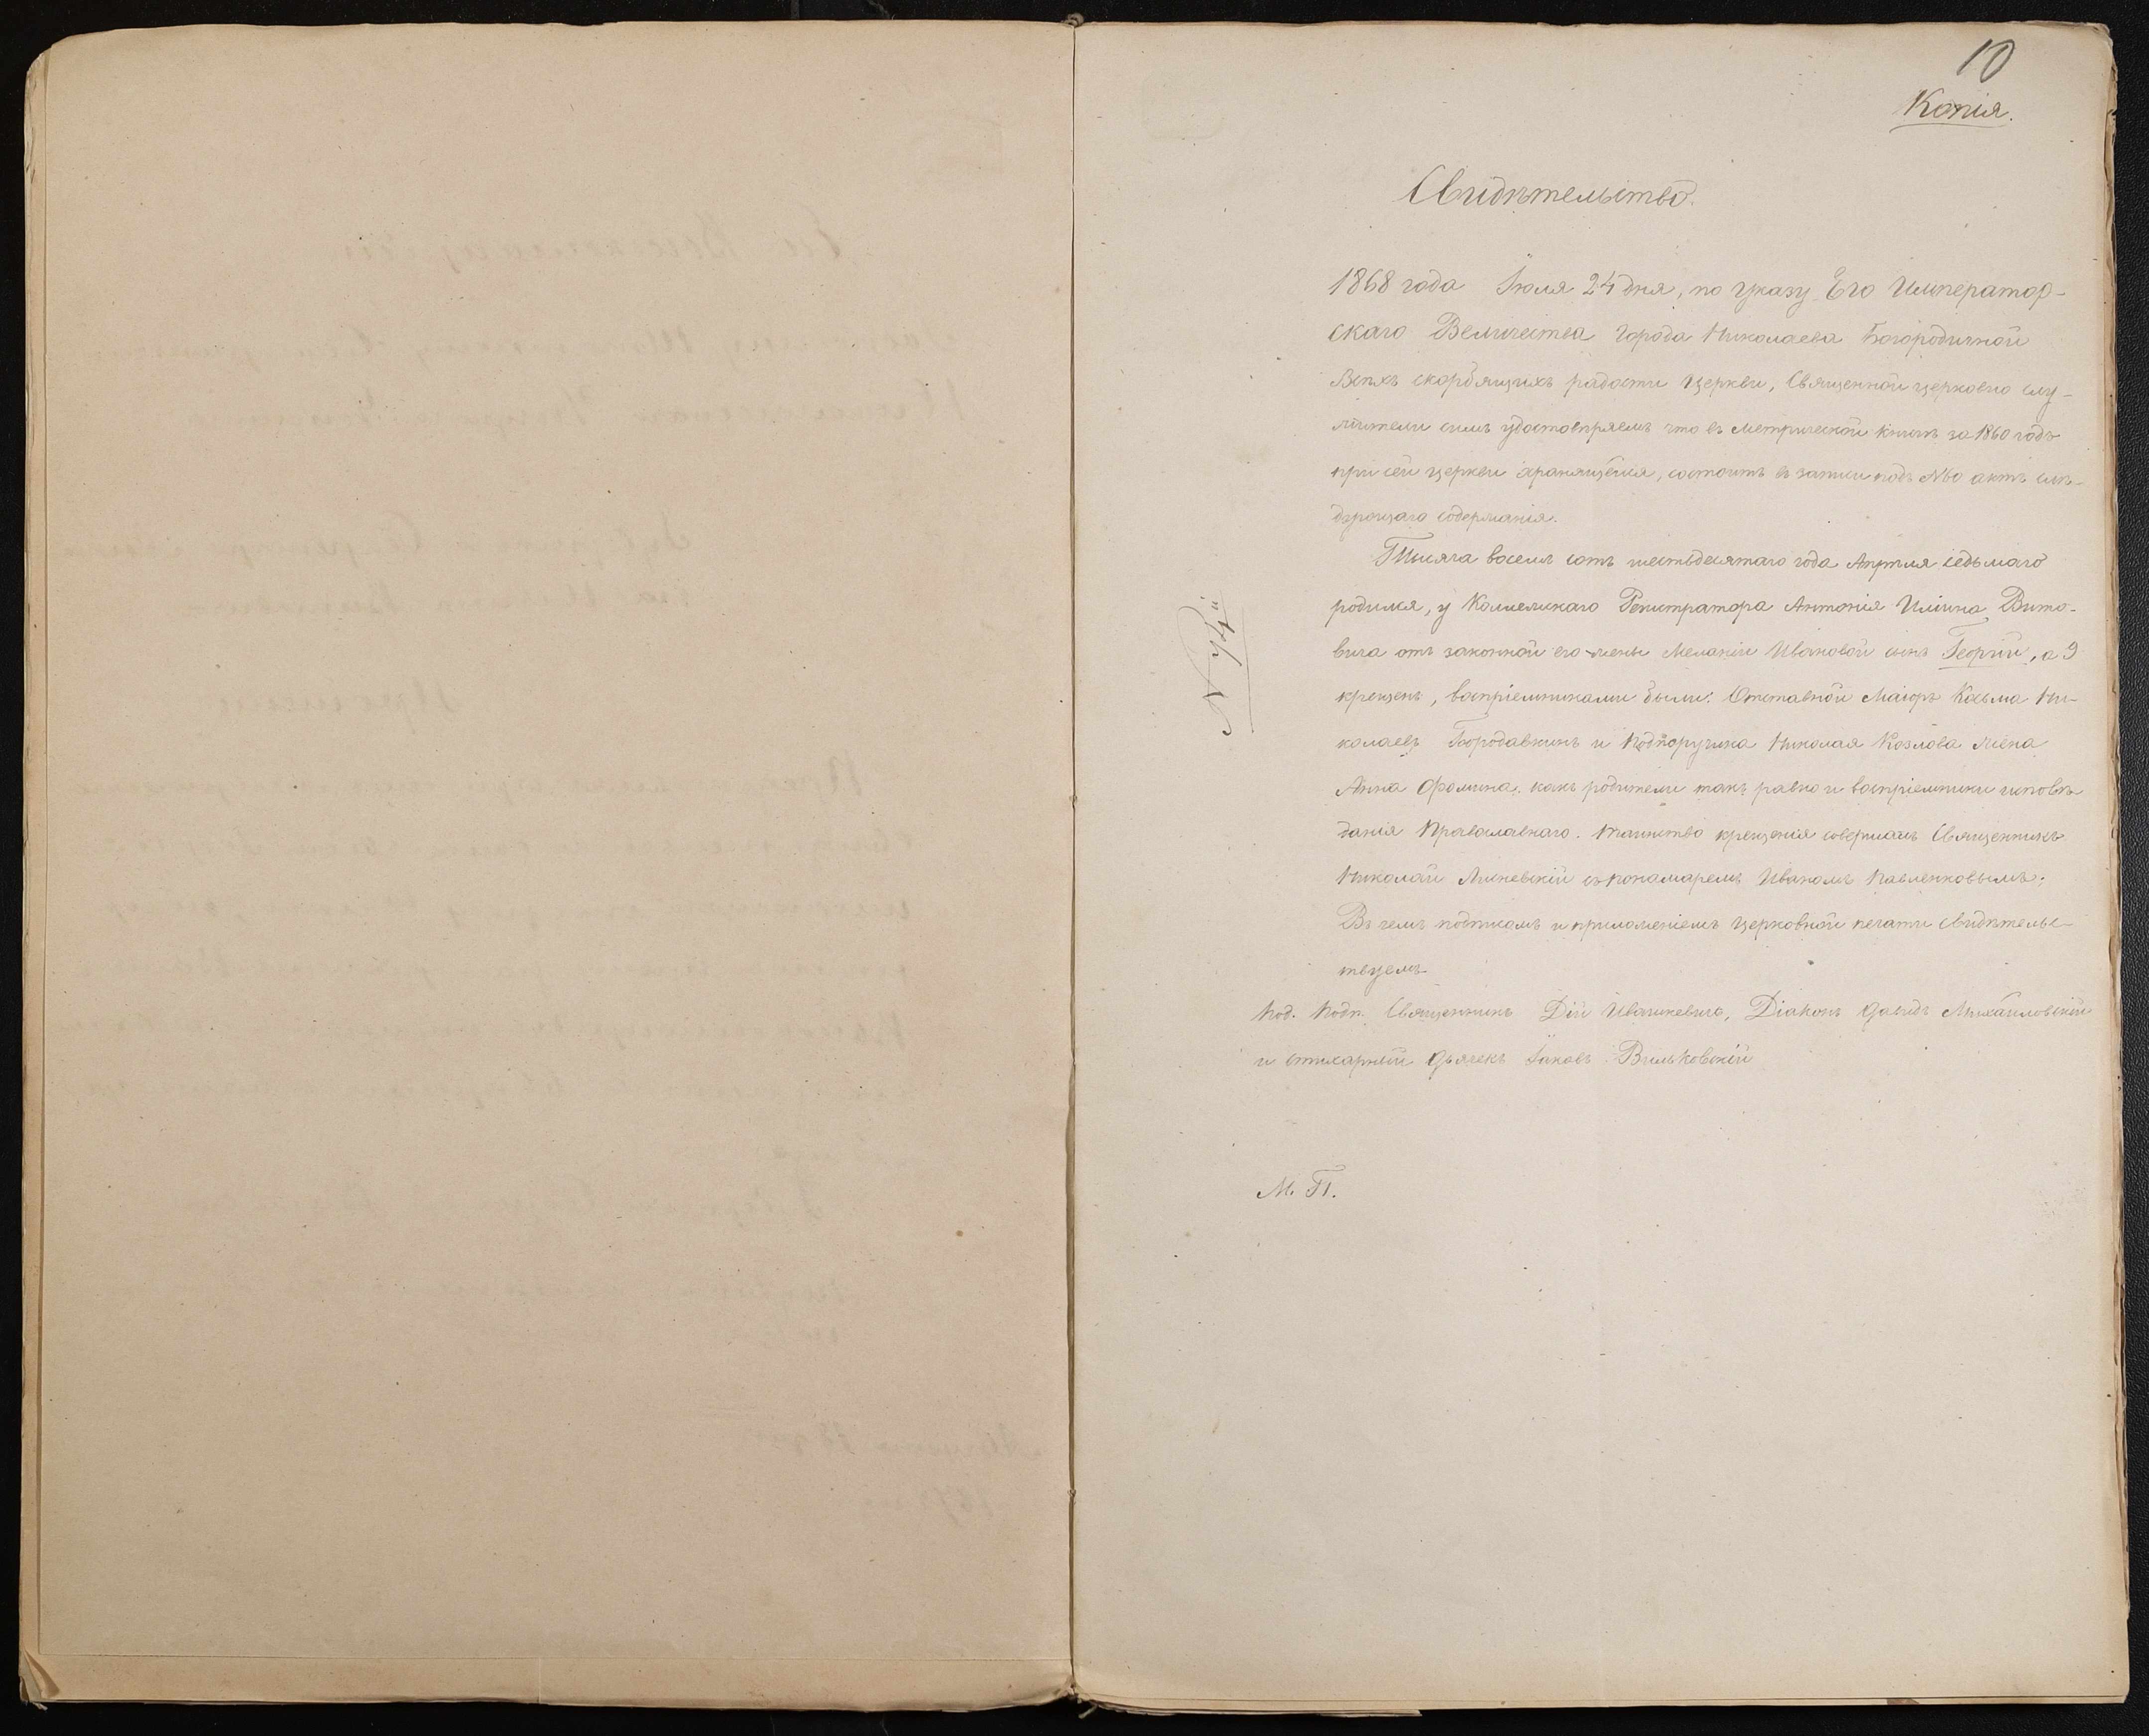 10
Копія.
Свидѣтельство.
1868 года Іюля 24 дня, по указу Его Император-
скаго Величества города Николаева Богородичной
Всѣхъ скорбящихъ радости Церкви, Священной церковно слу-
жители симъ удостовѣряемъ что въ метрической книгѣ за 1860 годъ
при сей церкви хранящейся, состоитъ въ записи подъ №60 актъ слѣ-
дующаго содержанія.
Тысяча восемь сотъ шестьдесятаго года Апрѣля седьмаго
родился, у Коллежскаго Регистратора Антонія Ильина Вито-
вича отъ законной его жены Меланіи Ивановой сынъ Георгій, а 9
крещенъ, воспріемниками были: Отставной Маіоръ Косьма Ни-
колаевъ Бородавкинъ и Подпоручика Николая Козлова жена
Анна Фомина, какъ родители такъ равно и воспріемники исповѣ-
данія Православнаго. Таинство крещенія совершалъ Священникъ
Николай съ пономаремъ Иваномъ Павленковымъ;
Въ чемъ подписомъ и приложеніемъ церковной печати свидѣтельс-
твуемъ
Под. Подп. Священникъ Дій Ивашкевичъ, Діаконъ Давидъ Михайловскій
и стихарный Дьячекъ Іаковъ Вильковскій
М. П.